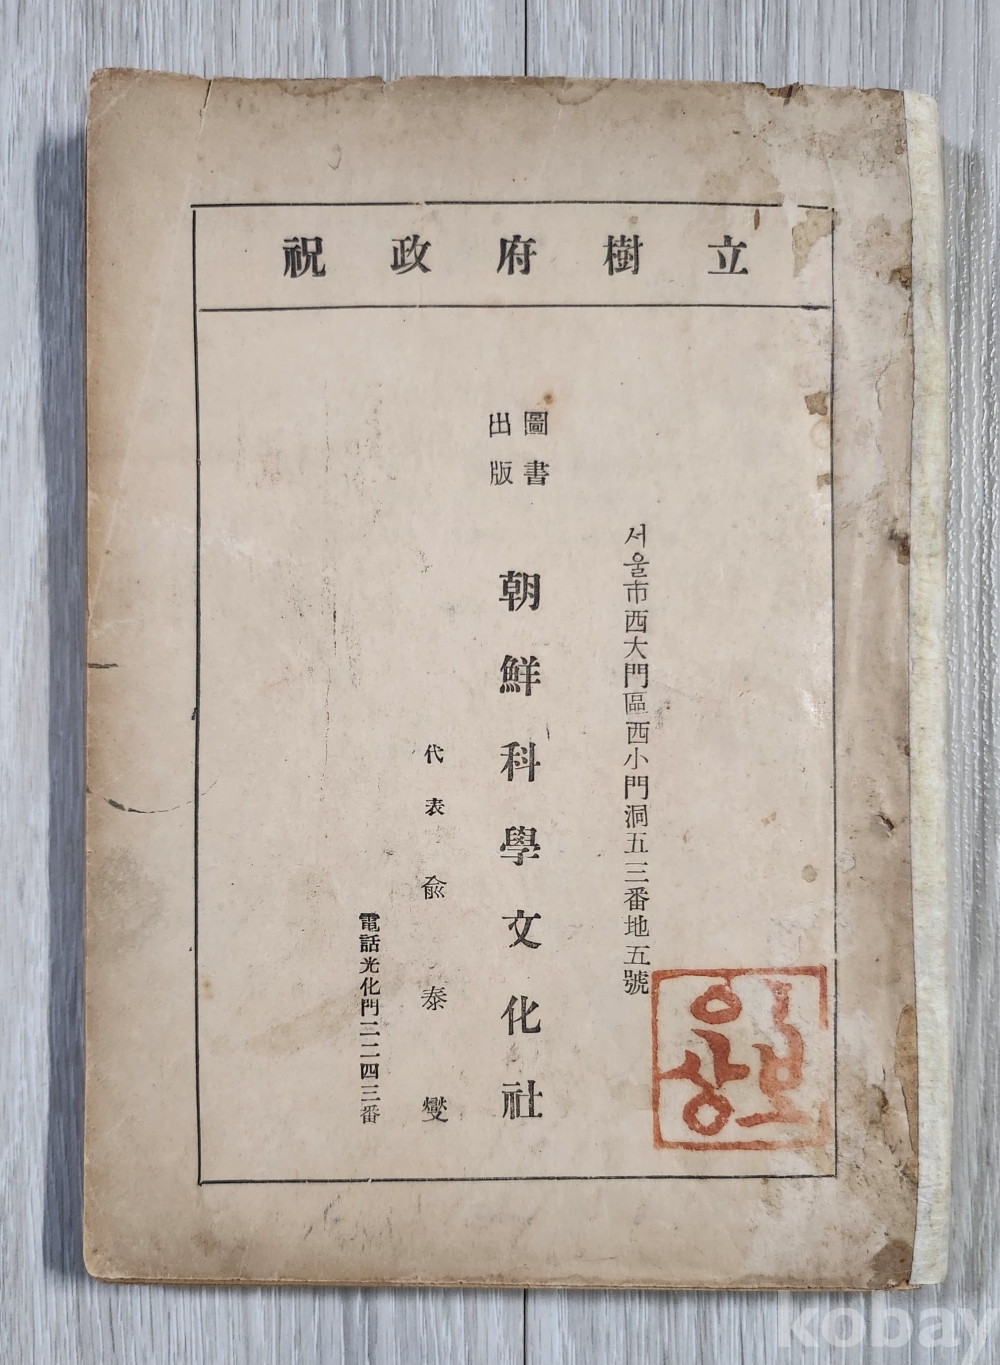 祝政府樹立
서울市西大門區西小門洞五三番地五號
圖書
出版
朝鮮科學文化社
代表 兪泰燮
電話光化門三二四三番
kobay